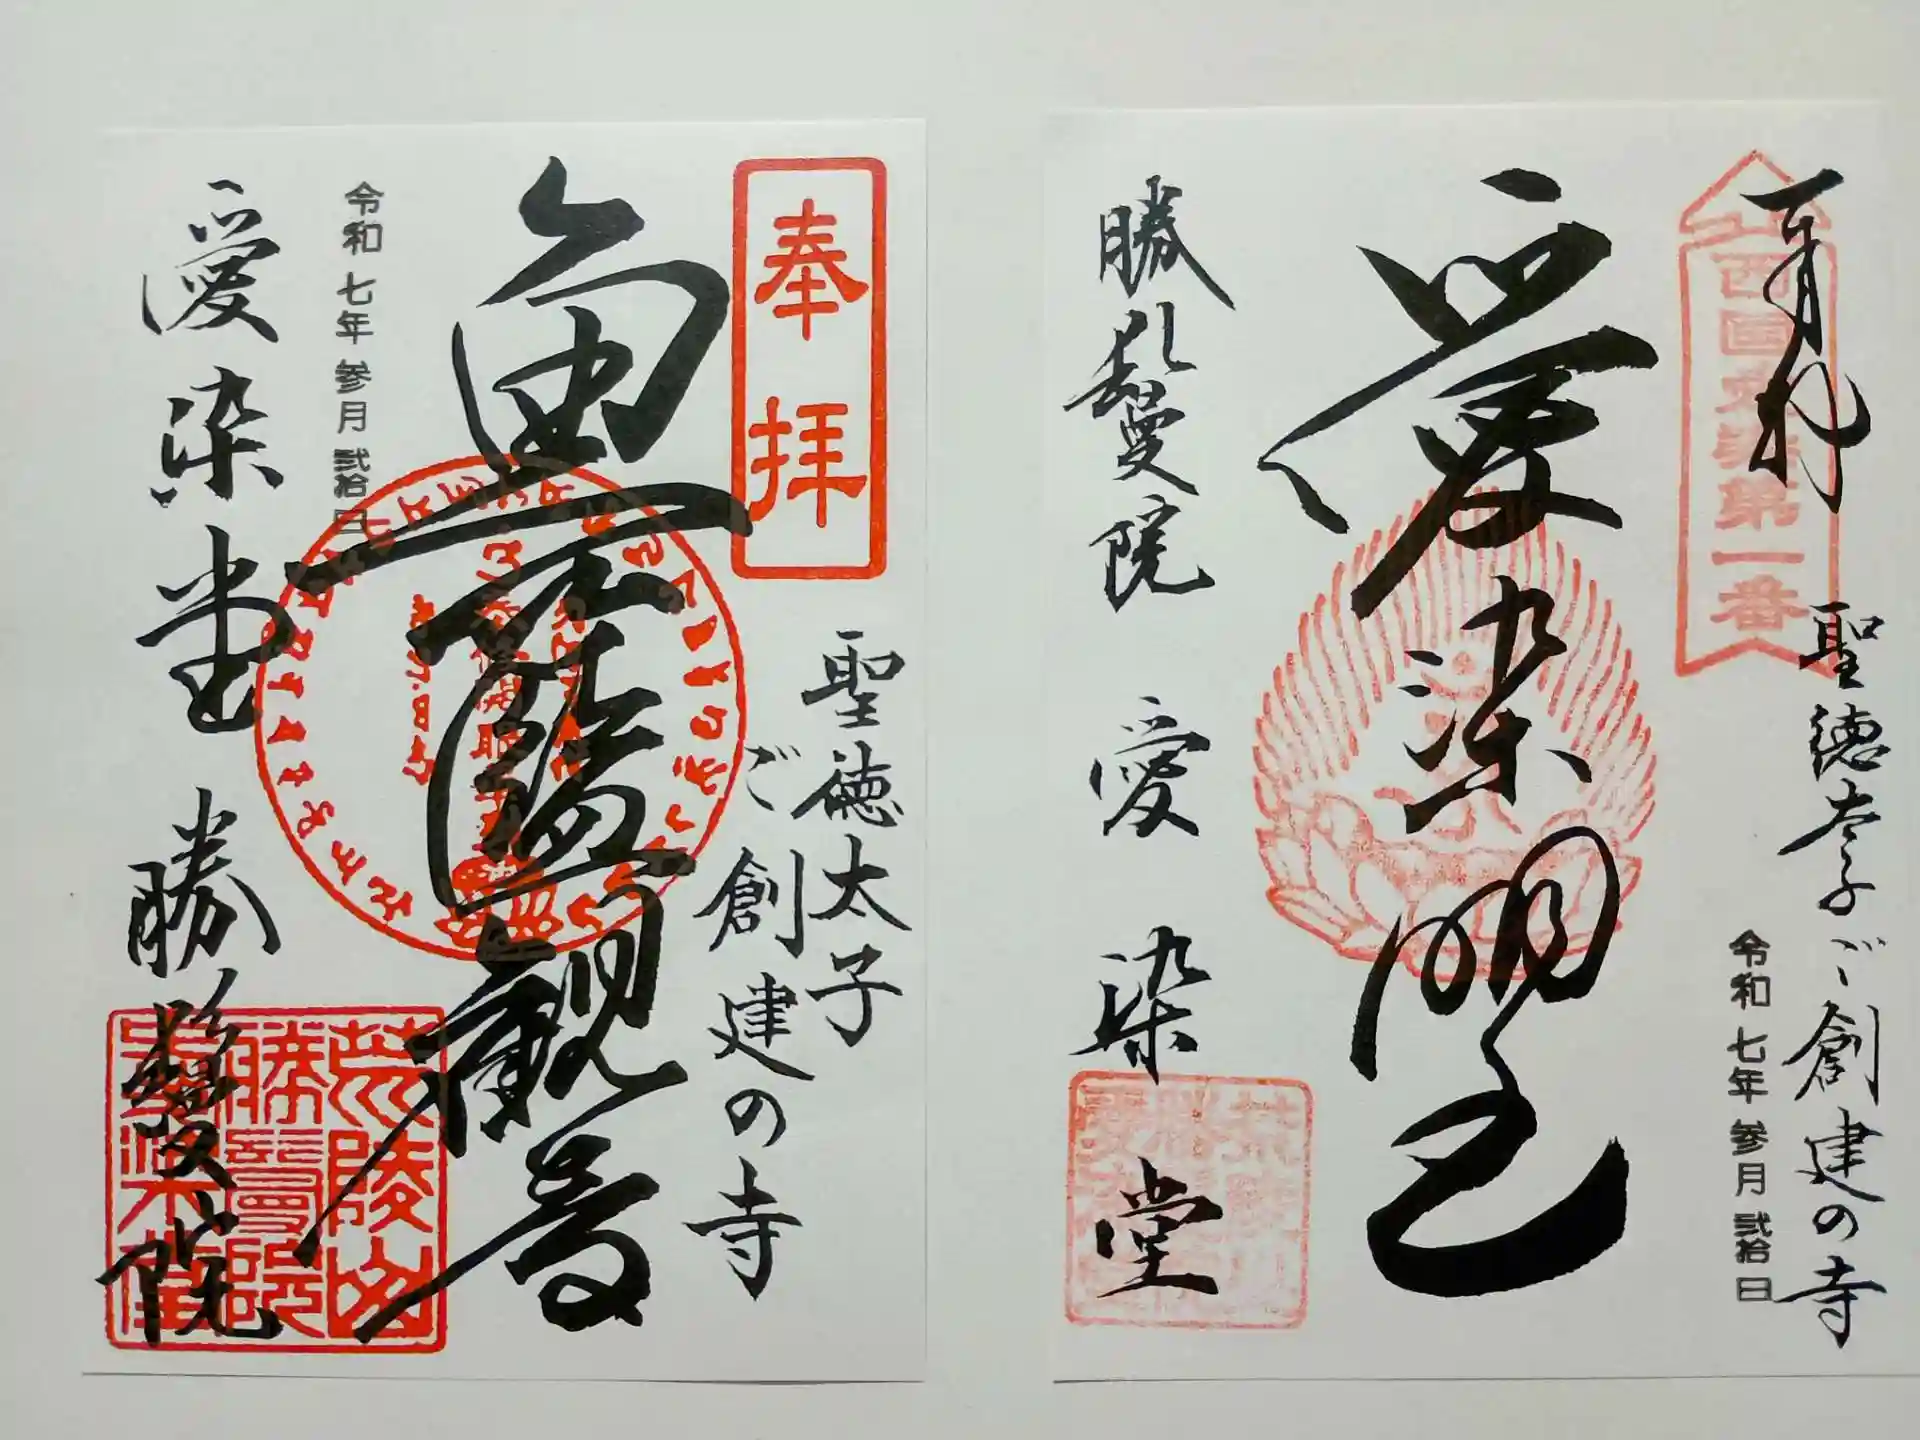 奉拝
聖徳太子
ご創建の寺
魚籃観音
令和七年参月弐拾日
愛染堂 勝鬘院
荒陵山
勝鬘院
愛染堂
奉拝
西国愛染第一番
聖徳太子ご創建の寺
令和七年参月弐拾日
愛染明王
勝鬘院 愛染堂